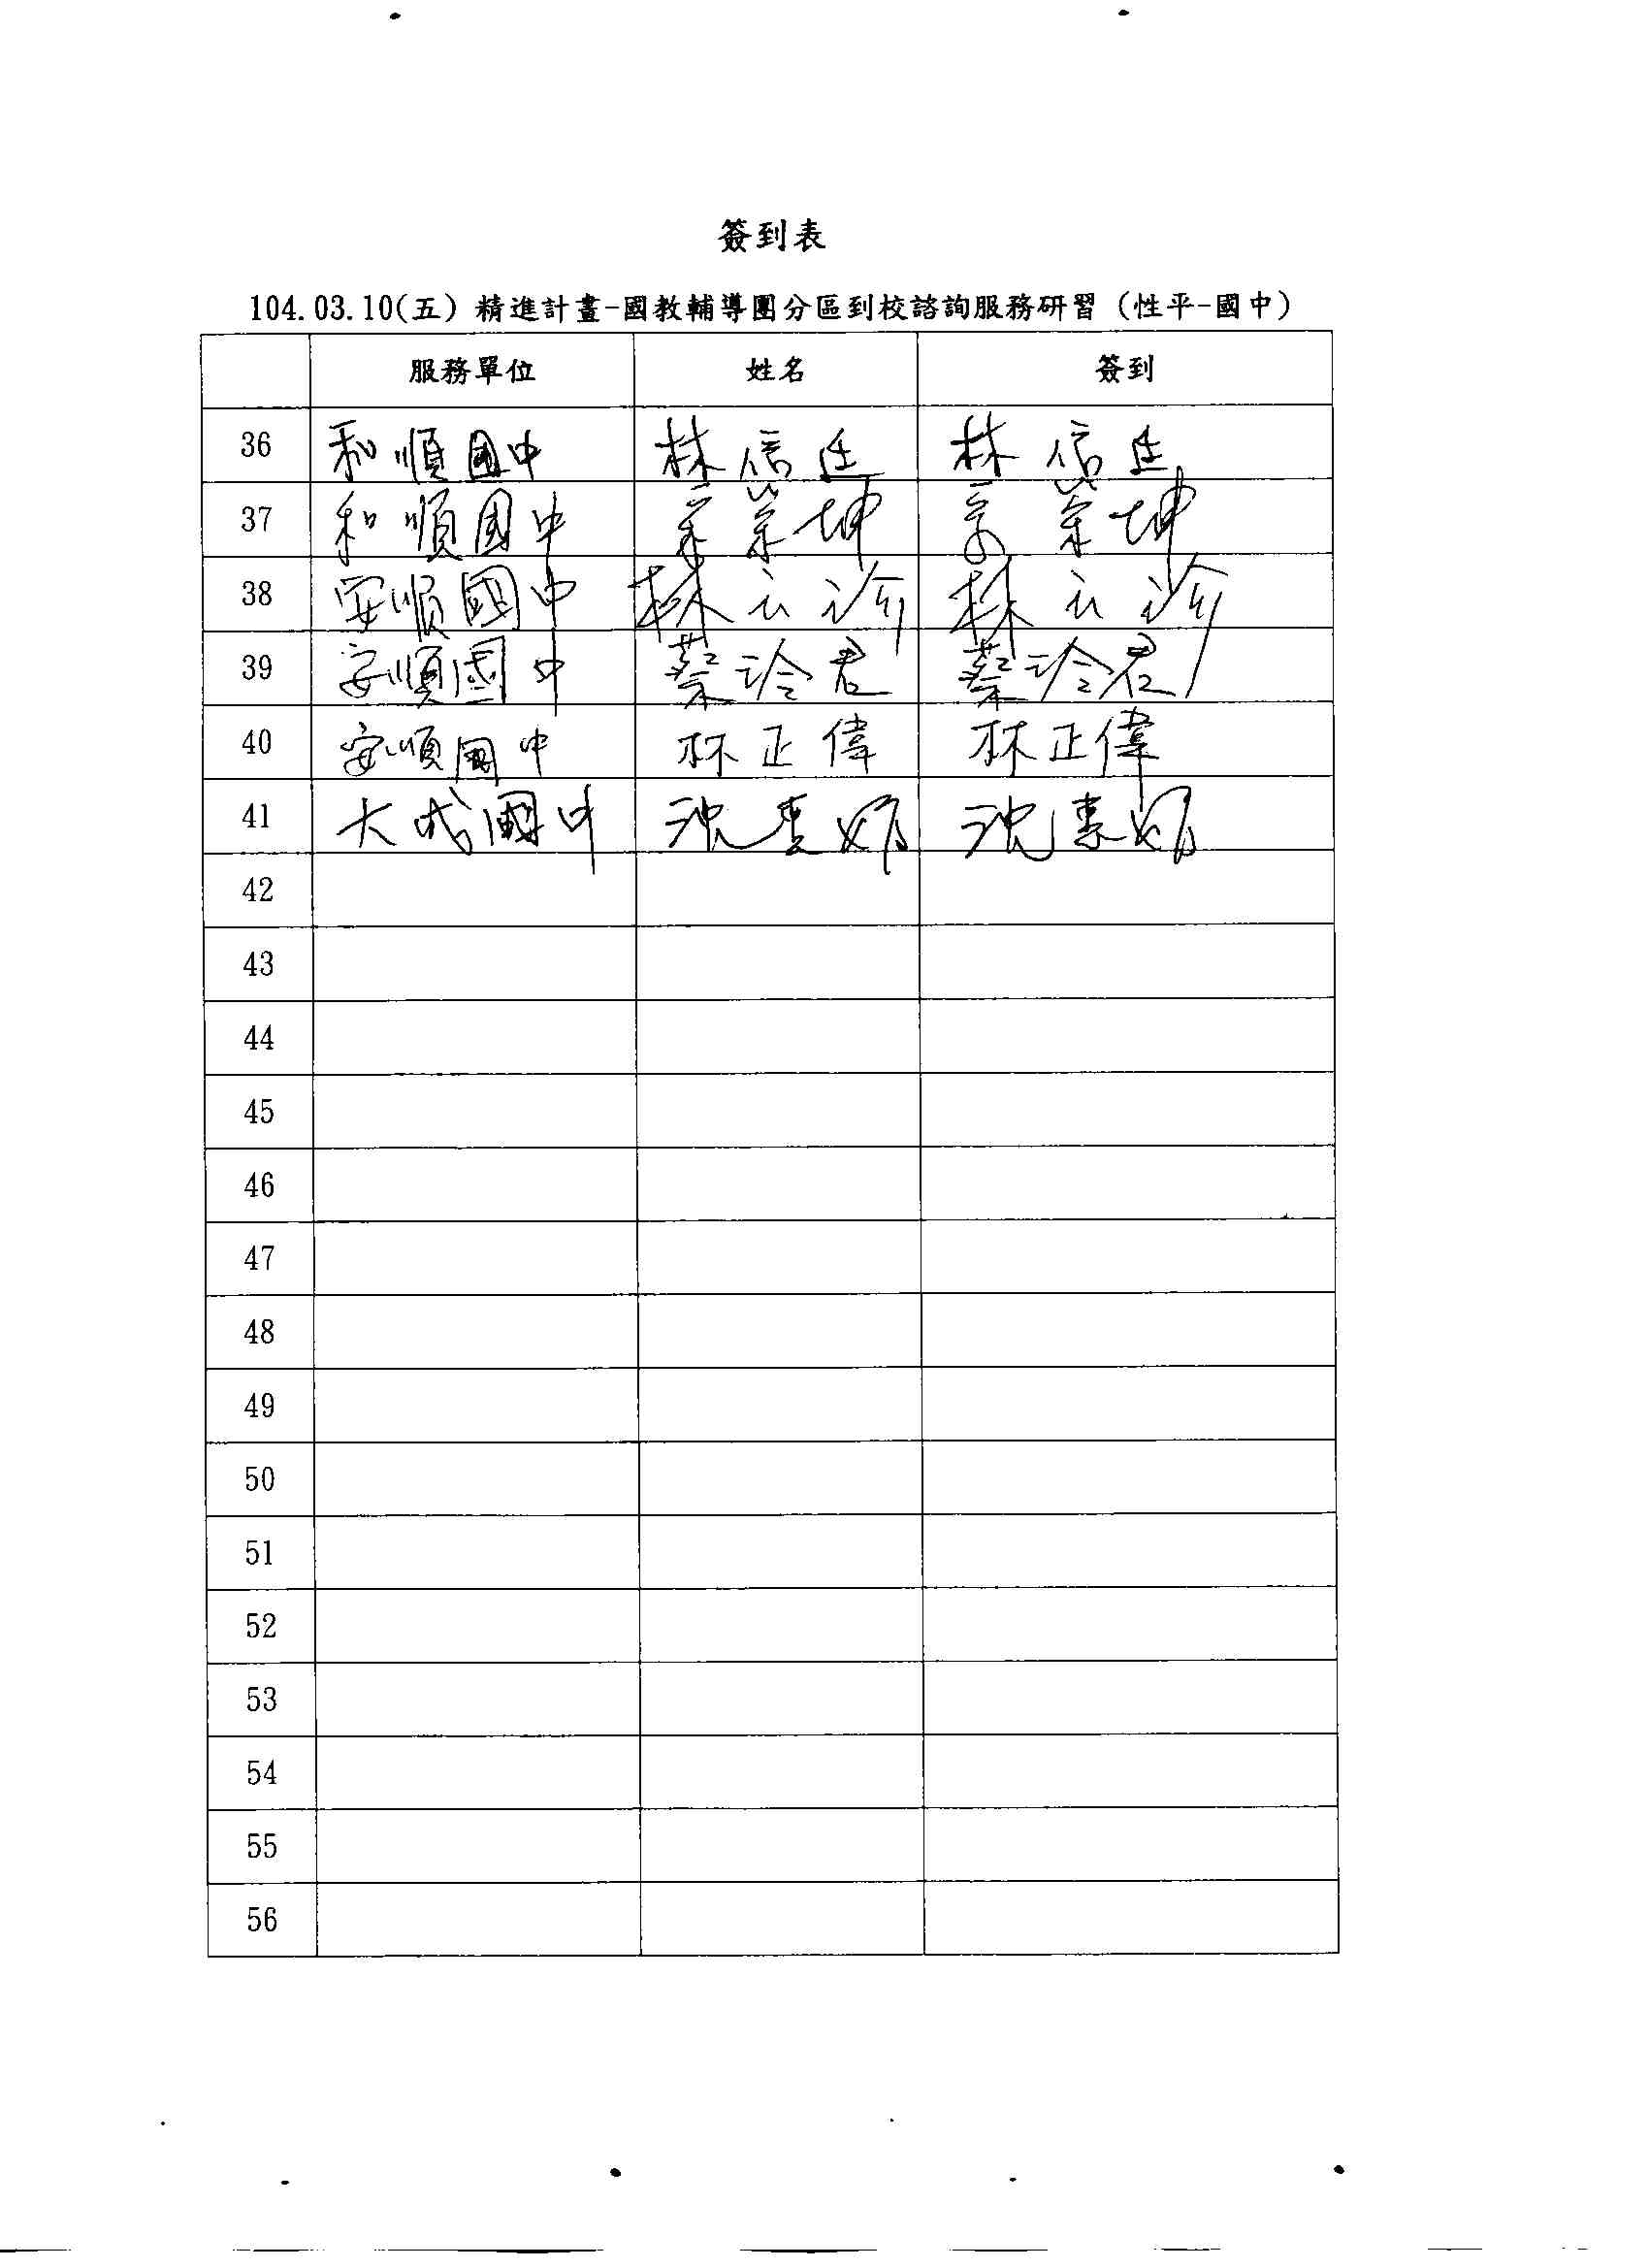 簽到表
104.03.10(五) 精進計畫-國教輔導團分區到校諮詢服務研習 (性平-國中)
服務單位 姓名 簽到
36 和順國中 林信廷 林信廷
37 和順國中 坤 坤
38 安順國中 林 林
39 安順國中 蔡 君 蔡 君
40 安順國中 林正偉 林正偉
41 大成國中 沈 沈
42
43
44
45
46
47
48
49
50
51
52
53
54
55
56